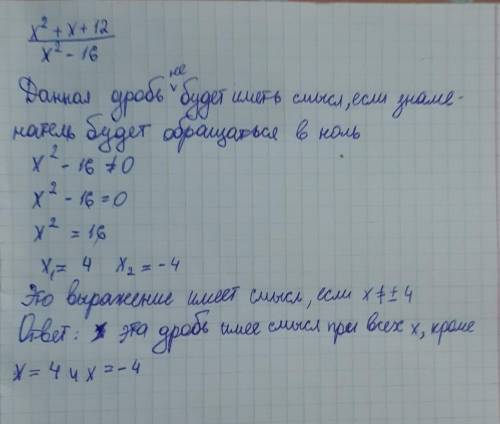 x² + x + 12
x² - 16
Данная дробь не будет иметь смысл, если знаме-
натель будет обращаться в ноль
x² - 16 ≠ 0
x² - 16 = 0
x² = 16
x₁ = 4 x₂ = -4
Это выражение имеет смысл, если x ≠ ± 4
Ответ: эта дробь имее смысл при всех x, кроме
x = 4 и x = -4